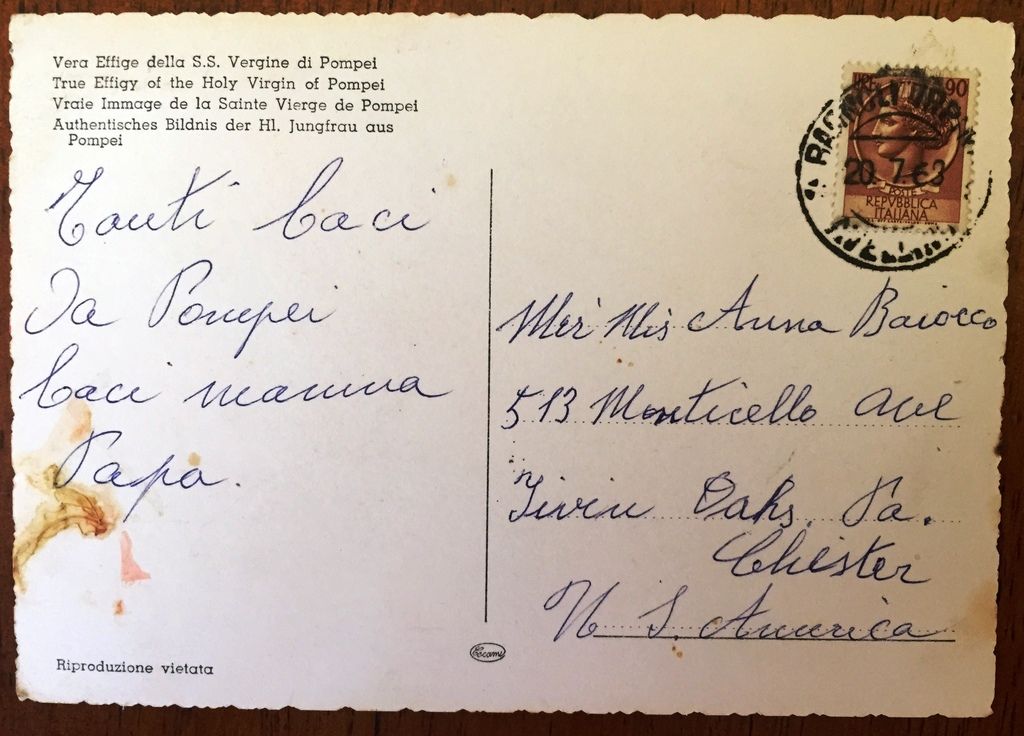 Vera Effige della S.S. Vergine di Pompei
True Effigy of the Holy Virgin of Pompei
Vraie Immage de la Sainte Vierge de Pompei
Authentisches Bildnis der Hl. Jungfrau aus
Pompei
90
20.7.63
POSTE
REPVBBLICA
ITALIANA
Tanti baci
Da Pompei
baci mamma
Papa.
Mer Mis Anna Baiocco
513 Monticello Ave
Twin Oaks. Pa.
Chister
U S. America
Riproduzione vietata